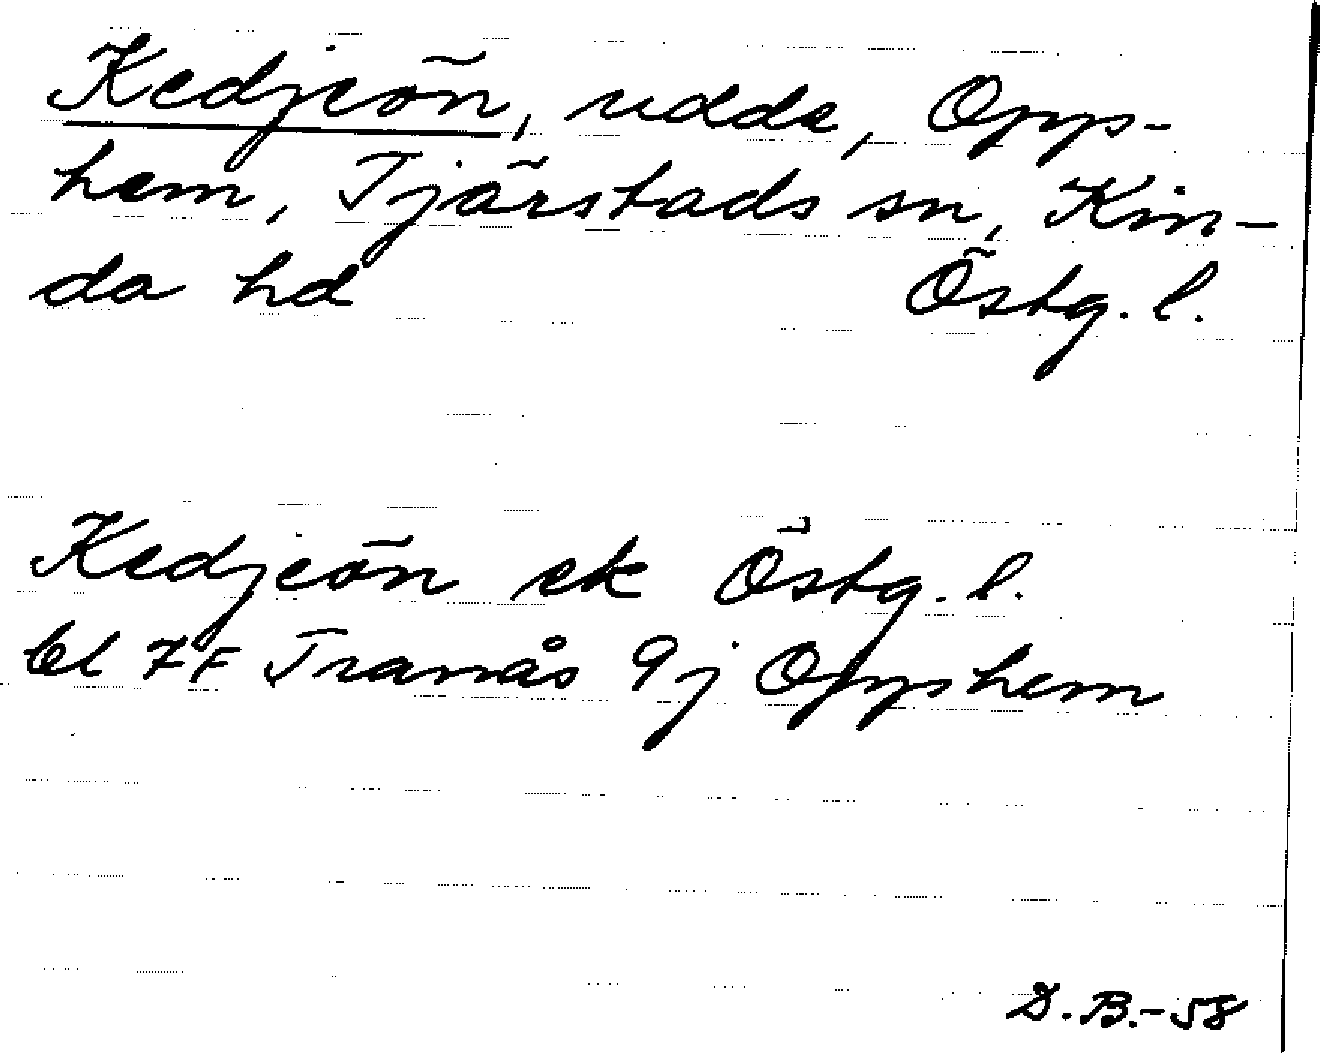 Kedjeön, udde, Opps-
hem, Tjärstads sn, Kin-
da hd Östg. l.
Kedjeön ek Östg. l.
bl 7F Tranås 9j Oppshem
D.B.-58